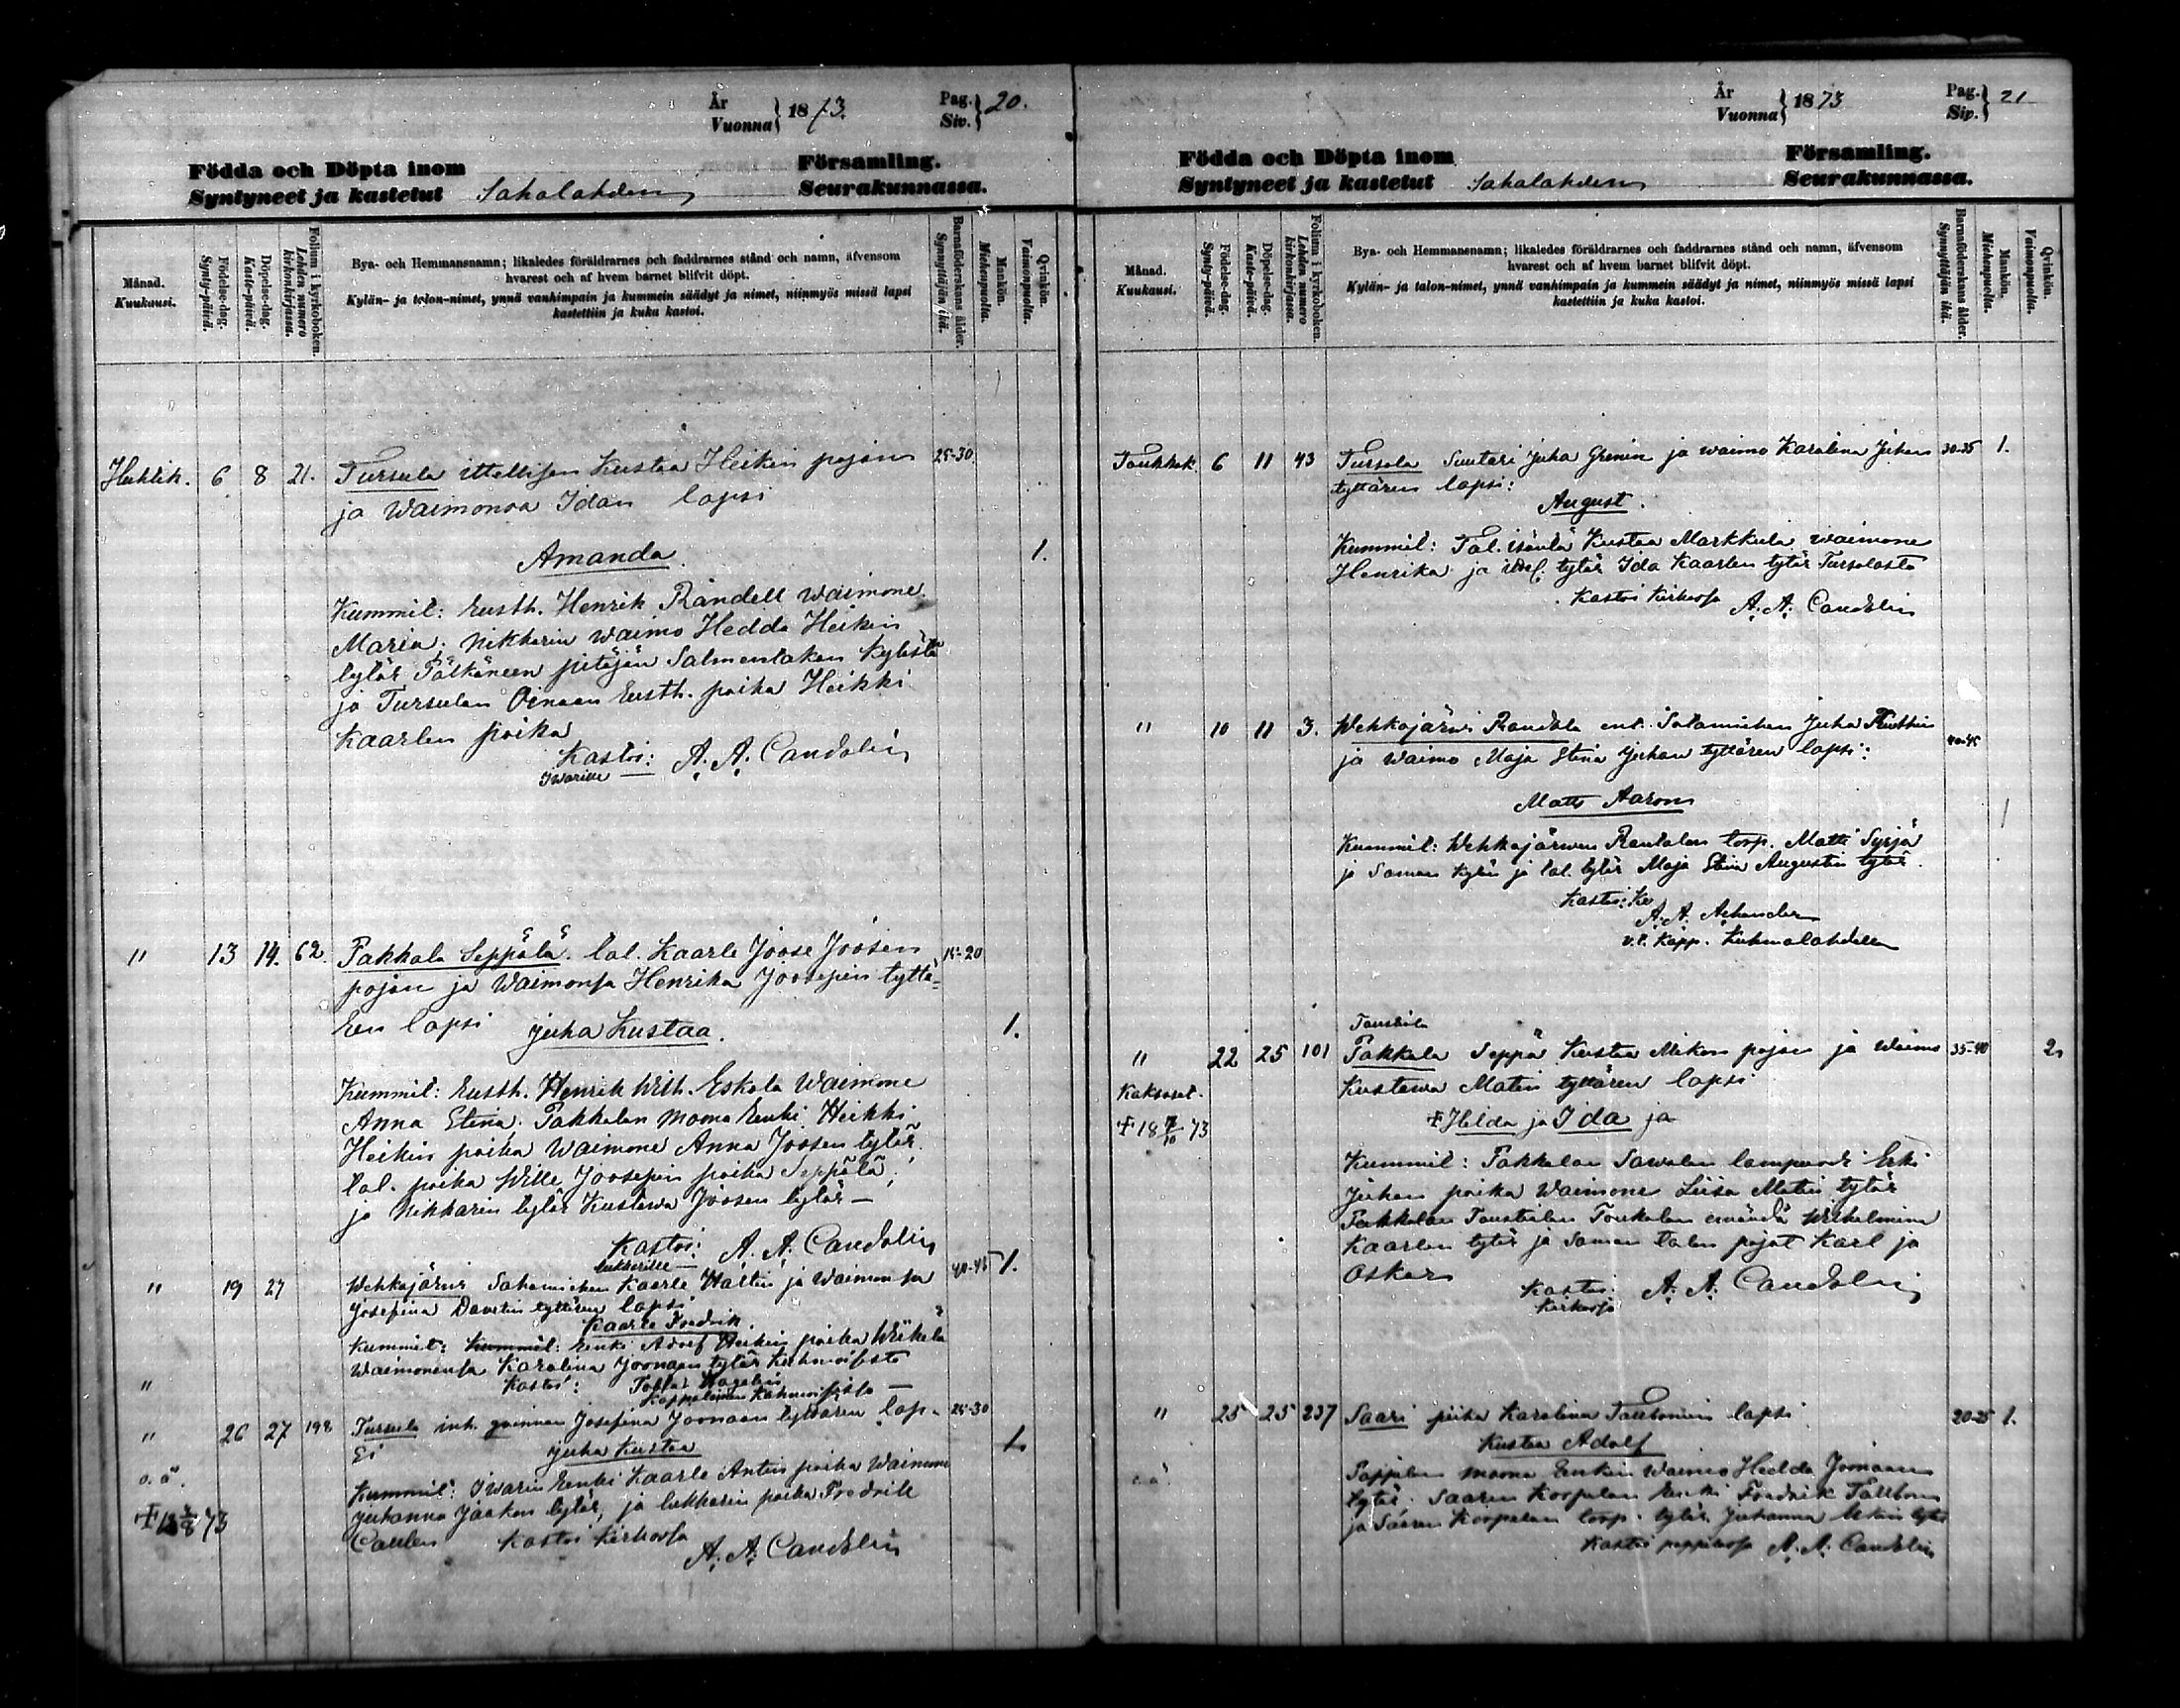 År
Vuonna } 1873.
Pag.
Siv. } 20.
Födda och Döpta inom Församling.
Syntyneet ja kastetut Sahalahden Seurakunnassa.
Månad.
Kuukausi.
Födelse-dag.
Synty-päivä.
Döpelse-dag.
Kaste-päivä.
Folium i kyrkoboken.
Lehden numero kirkonkirjassa.
Bya- och Hemmansnamn; likaledes föräldrarnes och faddrarnes stånd och namn, äfvensom
hvarest och af hvem barnet blifvit döpt.
Kylän- ja talon-nimet, ynnä vanhimpain ja kummein säädyt ja nimet, niinmyös missä lapsi
kastettiin ja kuka kastoi.
Barnaföderskans ålder.
Synnyttäjän ikä.
Mankön.
Miehenpuolia.
Qvinkön.
Vaimonpuolia.
Huhtik. 6 8 21. Tursula itellisen Kustaa Heikin pojan 25-30
ja Waimonsa Idan lapsi
Amanda. 1.
Kummit: Eusth. Henrik Randell waimone
Maria; Nikkarin waimo Hedda Heikin
tytär Pälkäneen pitäjän Salmentakan kylästä
ja Tursulan Oinaan Eusth. poika Heikki
Kaarlen poika
Kastoi: A. A. Candolin
" 13 14. 62. Pakkala Seppälä. tal. Kaarle Joose Joosen 15-20
pojan ja Waimonsa Henrika Joosepin tyttä-
ren lapsi Juha Kustaa. 1.
Kummit: Eusth. Henrik Wilh. Eskola Waimone
Anna Stina. Pakkalan Moma Renki Heikki
Heikin poika Waimone Anna Joosen tytär.
tal. poika Wille Joosepin poika Seppälä,
ja Nikkarin tytär Kustawa Joosen tytär —
Kastoi: A. A. Candolin
" 19 27 Wehkajärwi Sahamiehen Kaarle Martin ja Waimonsa 40-45 1.
Josefina Davetin tyttären lapsi
Kaarle Fredrik.
Kummit: Kummit: Renki Adolf Heikin poika
Waimonensa Karolina Joonaan tytär Kuhmoisista
Kastoi:
Kappalainen Kuhmoisista —
"
" 26 27 198 Tursula inh. Josefina Joonaan tyttären lap- 25-30
si Juha Kustaa 1.
o. ä. Kummit: Iwarin Renki Kaarle Antin poika Waimone
Juhanna Jaakon tytär, ja lukkarin poika Fredrik
73 Kastoi kirkossa
A. A. Candolin
År
Vuonna } 1873
Pag.
Siv. } 21
Födda och Döpta inom Församling.
Syntyneet ja kastetut Sahalahden Seurakunnassa.
Månad.
Kuukausi.
Födelse-dag.
Synty-päivä.
Döpelse-dag.
Kaste-päivä.
Folium i kyrkoboken.
Lehden numero kirkonkirjassa.
Bya- och Hemmansnamn; likaledes föräldrarnes och faddrarnes stånd och namn, äfvensom
hvarest och af hvem barnet blifvit döpt.
Kylän- ja talon-nimet, ynnä vanhimpain ja kummein säädyt ja nimet, niinmyös missä lapsi
kastettiin ja kuka kastoi.
Barnaföderskans ålder.
Synnyttäjän ikä.
Mankön.
Miehenpuolia.
Qvinkön.
Vaimonpuolia.
Toukok. 6 11 43 Tursola Suutari Juha Grenin ja waimo Karolina Juhan 30-35 1.
tyttären lapsi:
August.
Kummit: Tal. isäntä Kustaa Markkula waimone
Henrika ja tytär Ida Kaarlen tytär Tursolasta
Kastoi kirkossa A. A. Candolin
" 10 11 3. Wehkajärwi Randala ent. Juha 40-45
ja Waimo Maja Stina Juhan tyttären lapsi:
Matts Aaron 1
Kummit: Wehkajärwen Rantalan torp. Matti Syrjä
ja Saman kylän ja tal. tytär Maja Stina Augustin tytär.
Kastoi:
A. A.
v.t. Kapp. Kuhmalahdella
Toustula
" 22 25 101 Pakkala Seppä Kustaa Mikon pojan ja Waimo 35-40 2.
Kaksoset. Kustawa Matin tyttären lapsi
73 Hilda ja Ida ja
Kummit: Pakkalan Sawolan lampuodi Erki
Juhan poika Waimone Liisa Matin tytär
Pakkalan Toustulan Toukolan emändä Wilhelmina
Kaarlen tytär ja Saman talon pojat Karl ja
Oskar
Kastoi: A. A. Candolin
Kirkossa
" 25 25 237 Saari piika Karolina lapsi 20-25 1.
Kustaa Adolf
Pappilan moma Renkin Waimo Hedda Joonaan
tytär. Saaren Korpelan Renki Fredrik
ja Saaren Korpelan torp. tytär Juhanna tytär
Kastoi pappilassa A. A. Candolin